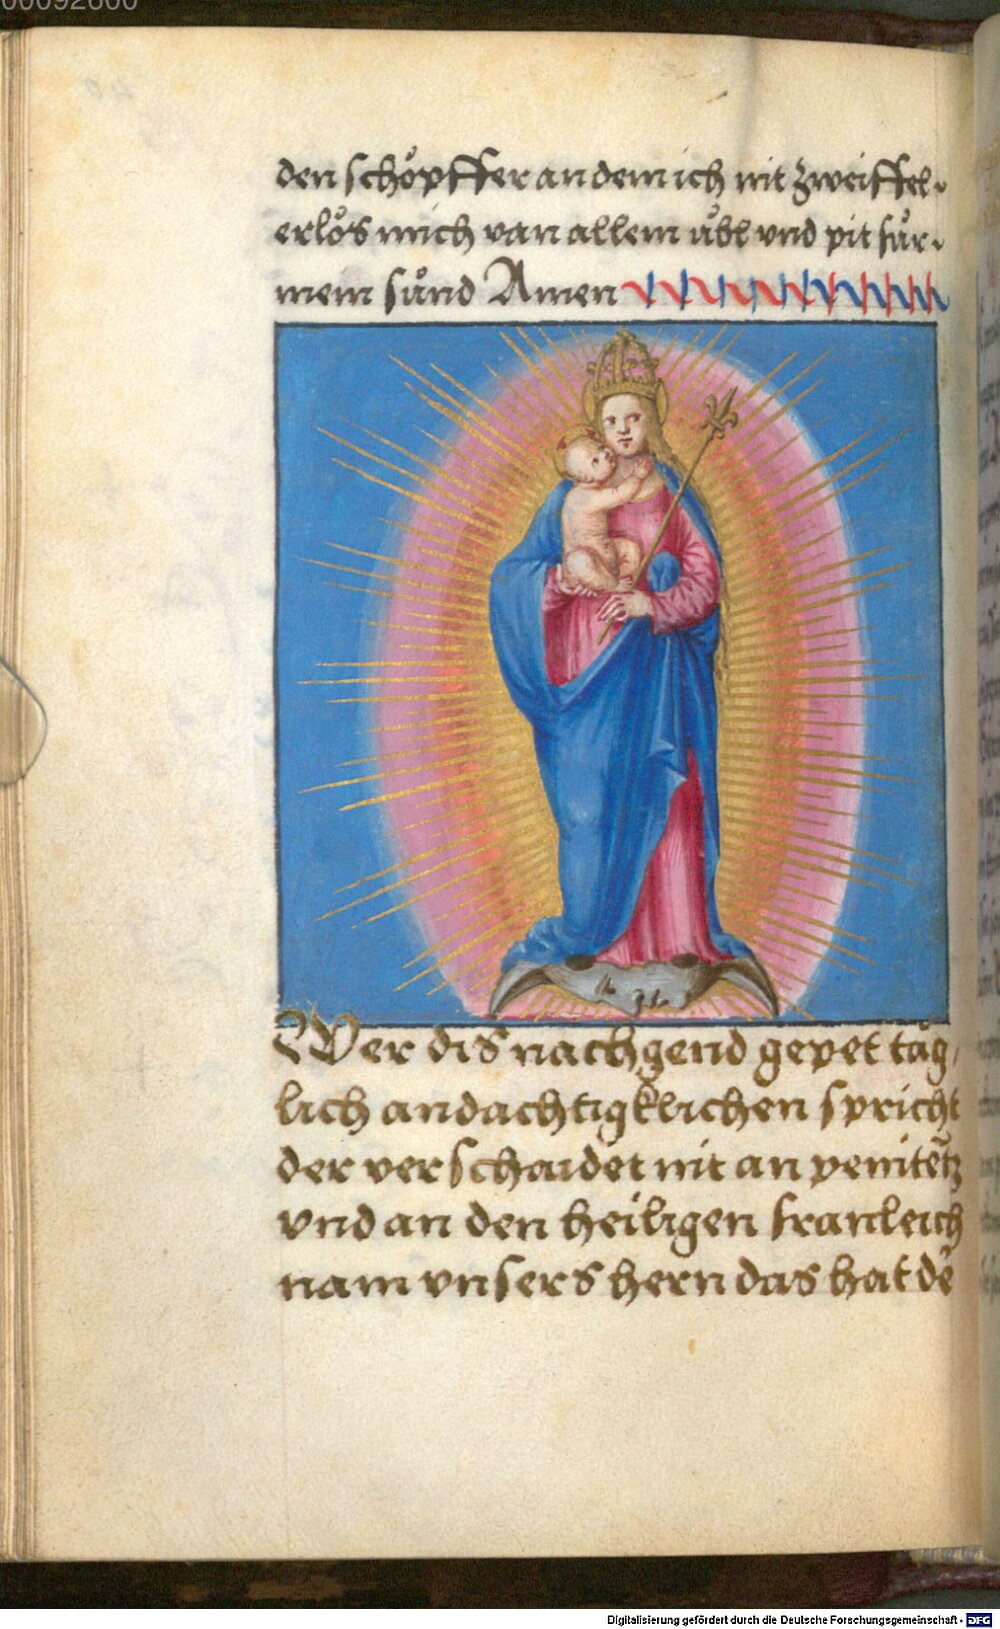 00092600
den schöpffer an dem ich nit zweiffel.
erlös mich van allem übl vnd pit für.
mein sünd Amen
Wer dis nachgend gepet täg/
lich andachtigklichen spricht
der verschaidet nit an penitētz
vnd an den heiligen franleich
nam vnsers hern das hat dē
Digitalisierung gefördert durch die Deutsche Forschungsgemeinschaft - DFG